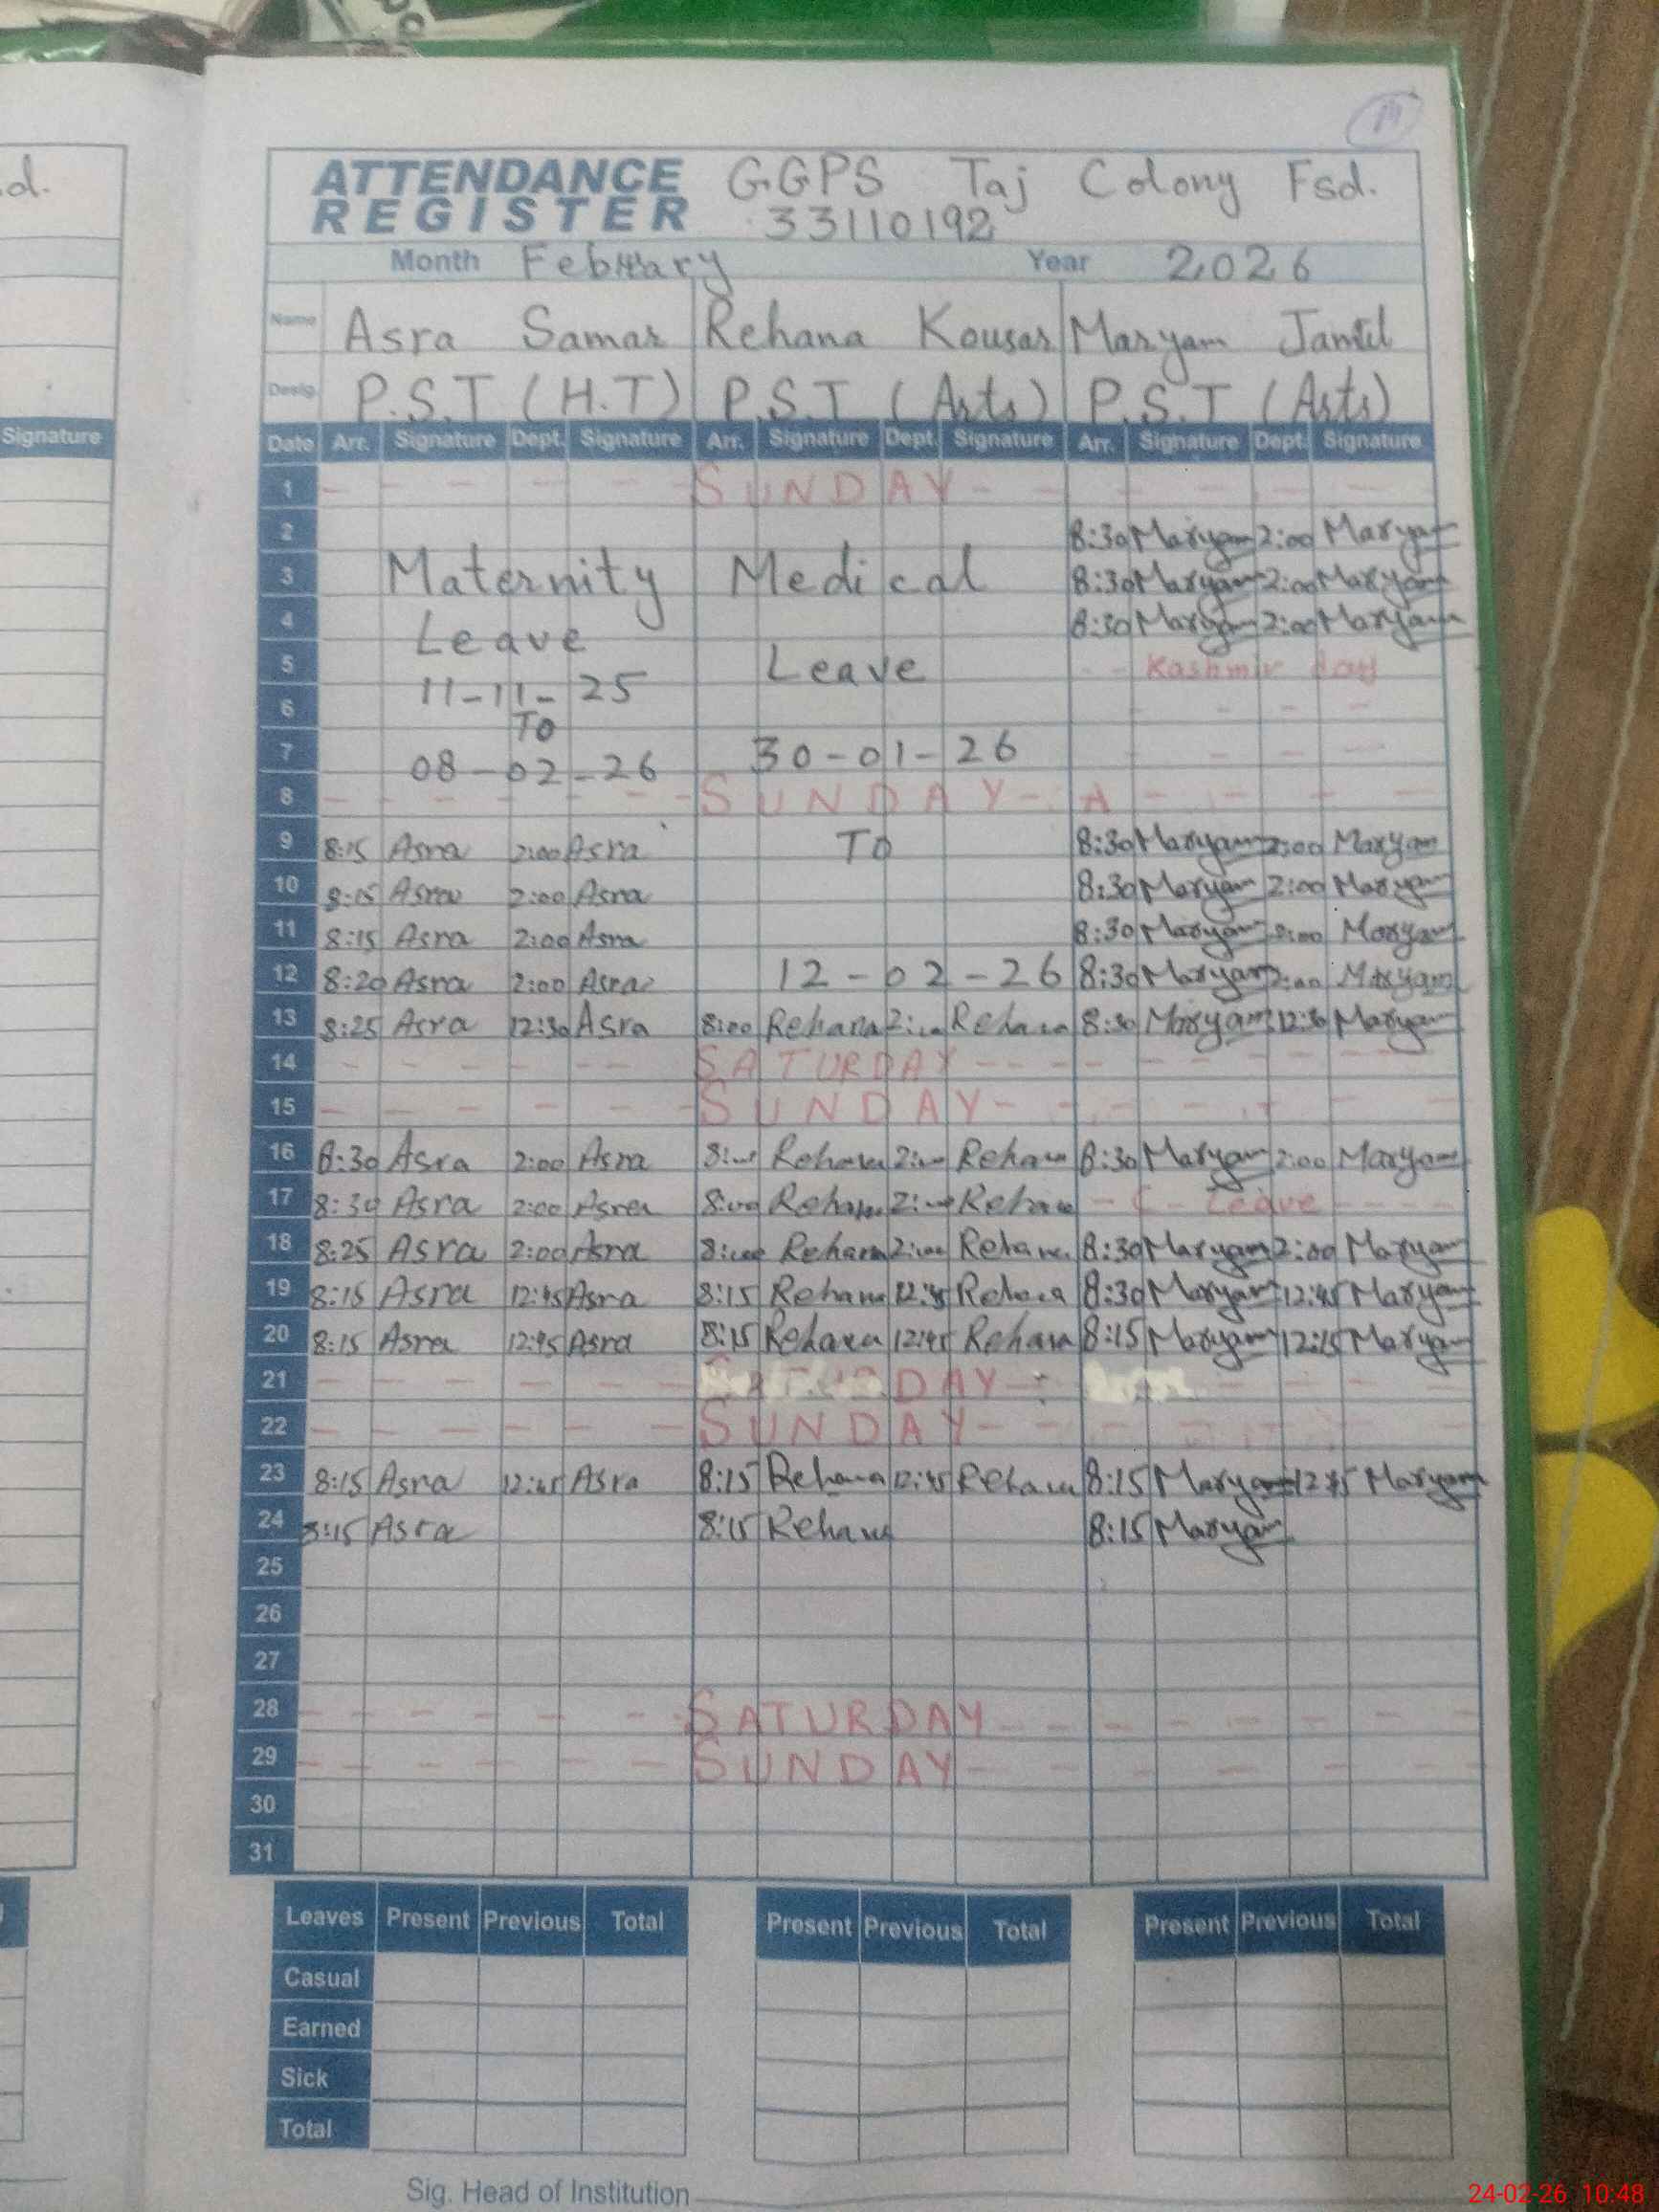 d.
Signature
ATTENDANCE REGISTER GGPS Taj Colony Fsd.
33110192
Month February Year 2026
Name Asra Samar Rehana Kousar Maryam Jamil
Desig. P.S.T (H.T) P.S.T (Arts) P.S.T (Arts)
Date Arr. Signature Dept. Signature Arr. Signature Dept. Signature Arr. Signature Dept. Signature
1 SUNDAY
2 8:30 Maryam 2:00 Maryam
3 Maternity Medical 8:30 Maryam 2:00 Maryam
4 Leave 8:30 Maryam 2:00 Maryam
5 Leave Kashmir day
6 11-11-25
TO
7 08-02-26 30-01-26
8 SUNDAY A
9 8:15 Asra 2:00 Asra TO 8:30 Maryam 2:00 Maryam
10 8:15 Asra 2:00 Asra 8:30 Maryam 2:00 Maryam
11 8:15 Asra 2:00 Asra 8:30 Maryam 2:00 Maryam
12 8:20 Asra 2:00 Asra 12-02-26 8:30 Maryam 2:00 Maryam
13 8:25 Asra 12:30 Asra 8:00 Rehana 2:00 Rehana 8:30 Maryam 12:30 Maryam
14 SATURDAY
15 SUNDAY
16 8:30 Asra 2:00 Asra 8:00 Rehana 2:00 Rehana 8:30 Maryam 2:00 Maryam
17 8:30 Asra 2:00 Asra 8:00 Rehana 2:00 Rehana - C - Leave
18 8:25 Asra 2:00 Asra 8:00 Rehana 2:00 Rehana 8:30 Maryam 2:00 Maryam
19 8:15 Asra 12:45 Asra 8:15 Rehana 12:45 Rehana 8:30 Maryam 12:45 Maryam
20 8:15 Asra 12:45 Asra 8:15 Rehana 12:45 Rehana 8:15 Maryam 12:15 Maryam
21 SATURDAY
22 SUNDAY
23 8:15 Asra 12:45 Asra 8:15 Rehana 12:45 Rehana 8:15 Maryam 12:45 Maryam
24 8:15 Asra 8:15 Rehana 8:15 Maryam
25
26
27
28 SATURDAY
29 SUNDAY
30
31
Leaves Present Previous Total Present Previous Total Present Previous Total
Casual
Earned
Sick
Total
Sig. Head of Institution
24-02-26 10:48